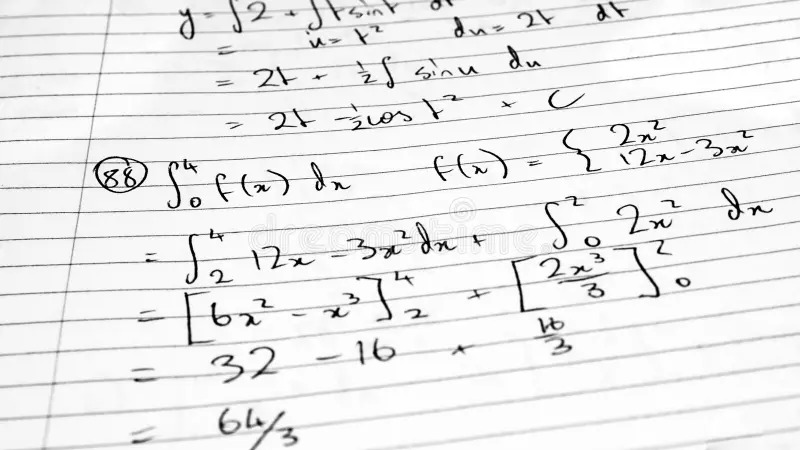 y = ∫2 + ∫t sint dt
= u = t² du = 2t dt
= 2t + ½∫ sinu du
= 2t - ½cos t² + C
88 ∫₀⁴ f(x) dx f(x) = { 2x²
12x - 3x²
= ∫₂⁴ 12x - 3x² dx + ∫₀² 2x² dx
= [6x² - x³]₂⁴ + [2x³/3]₀²
= 32 - 16 + 16/3
= 64/3
dreamstime